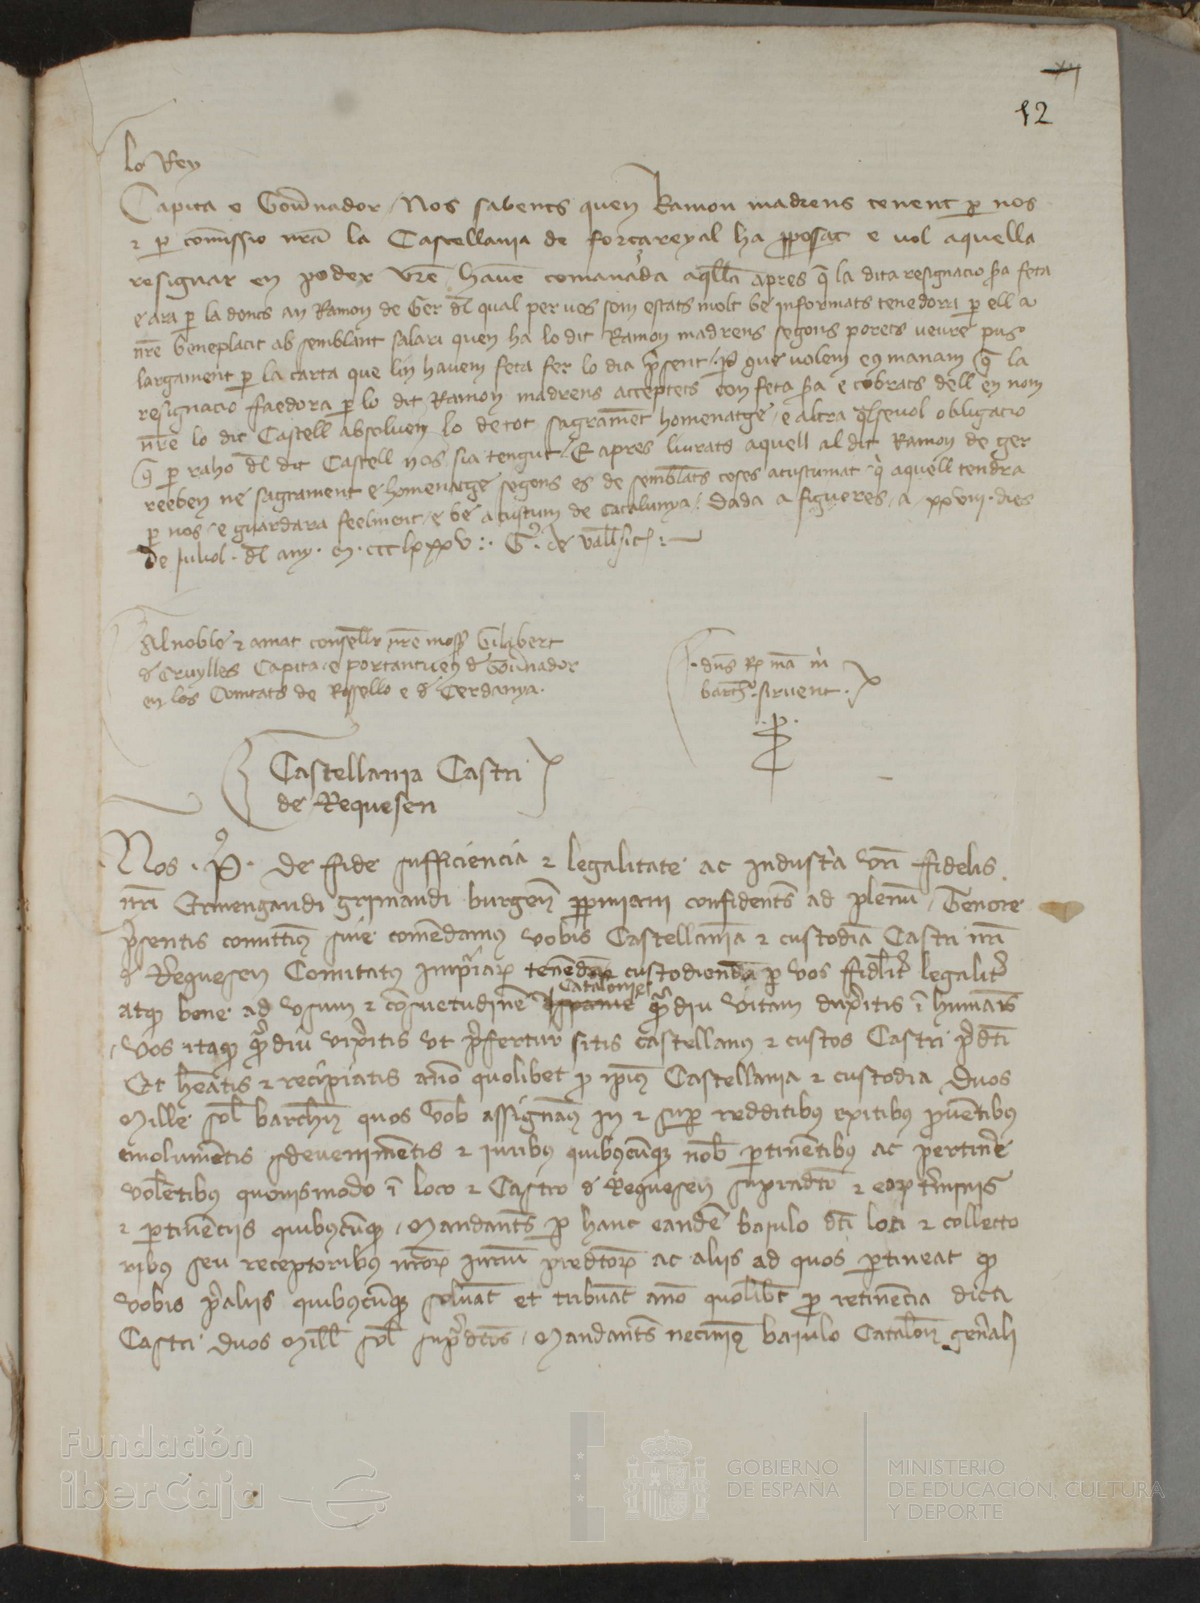 12
lo Rey
Capita e Gou̅nador / Nos sabents quen Ramon madrens tenent p̲ nos
⁊ p̲ com̅issio nr̅a la Castellania de forçareyal ha p̲posat e vol aquella
resignar en poder vr̅e hau̅e comanada aq̅lla apres q̅ la dita resignacio s̅a feta
e ara p̲ la donts an Ramon de Ger dl̅ qual per vos som estats molt be informats tenedora p̲ ell a
nr̅e beneplacit ab semblant salari quen ha lo dit Ramon madrens segons porets veure pus
largament p̲ la carta que lin havem feta fer lo dia p̅sent / p̲ q̅ us volem e us manam q̅ la
resignacio faedora p̲ lo dit Ramon madrens acceptets com feta s̅a e cobrats dell en nom
nr̅e lo dit Castell absoluen lo de tot sagrament homenatge / e altra q̅lseuol obligacio
q̅ p̲ raho dl̅ dit Castell nos sia tengut / E apres liurats aquell al dit Ramon de ger
reeben ne sagrament e homenatge segons es de semblats coses acustumat q̅ aquell tendra
p̲ nos / e guardara feelment / e be a custum de Catalunya / Dada a figueres / a xxviii dies
de juliol dl̅ any m ccc lxxxv
Al noble ⁊ amat consell̅r nr̅e moss̅ Gilabert
d̅ Cruylles Capita e portantueu d̅ Gou̅nador
en los Comtats de Rossello e d̅ Cerdanya
dn̅s Rex ma̅ m̅
barth̅o sirvent
p̲
Castellania Castri
de Requesen
Nos P. De fide sufficiencia ⁊ legalitate ac industria vr̅i fidelis
nr̅i Ermengaudi grimaudi burgen̅ p̲piniani confident̅s ad plenu̅ / Tenore
p̅sentis comittim̅ siue comendamus vobis Castellania̅ ⁊ custodia̅ Castri nr̅i
d̅ Requesen Comitatus impiar̅ tenenda̅ custodienda̅ p̲ vos fidelit̅ legalit̅
atq̲ bene ad vsum ⁊ consuetudine̅ Catalonie q̅mdiu vitam duxitis i̅ humanis
vos itaq̲ q̅mdiu vixitis vt p̅fertur sitis castellanus ⁊ custos Castri p̅dc̅i
Et h̅eatis ⁊ recipiatis an̅o quolibet p̲ ip̅ius Castellania ⁊ custodia Duos
Mille sol̅ barchn̅ quos vob̅ assignam̅ in ⁊ sup̲ redditibus exitibus p̲uentibus
emolumentis adeuenimentis ⁊ iuribus quibuscumq̲ nob̅ p̲tinentibus ac pertine̅
volentibus quouismodo i̅ loco ⁊ Castro d̅ Requesen supradc̅o ⁊ eor̅ t̅minis
⁊ p̲tinenciis quibuscumq̲ / Mandant̅s p̲ hanc eandem baiulo dc̅i loci ⁊ collecto
ribus seu receptoribus nr̅or̅ iurium predc̅or̅ ac aliis ad quos p̲tineat q̲
vobis p̅aliis quibuscumq̲ soluant et tribuant an̅o quolibet p̲ retinencia dicti
Castri Duos Mill̅ sol̅ sup̅dc̅os / Mandant̅s necminus baiulo Catalon̅ gen̅ali
Fundación
iberCaja
GOBIERNO
DE ESPAÑA
MINISTERIO
DE EDUCACIÓN, CULTURA
Y DEPORTE